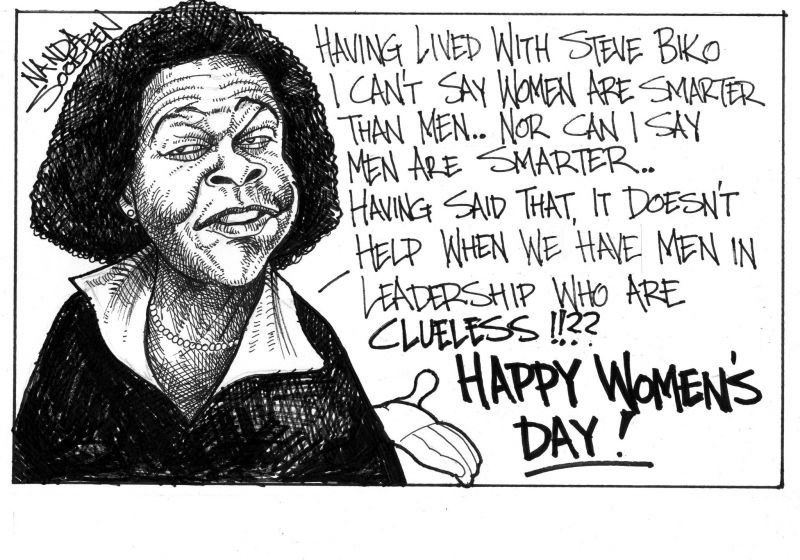 NANDA
SOOBBEN
HAVING LIVED WITH STEVE BIKO
I CAN'T SAY WOMEN ARE SMARTER
THAN MEN.. NOR CAN I SAY
MEN ARE SMARTER..
HAVING SAID THAT, IT DOESN'T
HELP WHEN WE HAVE MEN IN
LEADERSHIP WHO ARE
CLUELESS!!??
HAPPY WOMEN'S
DAY!